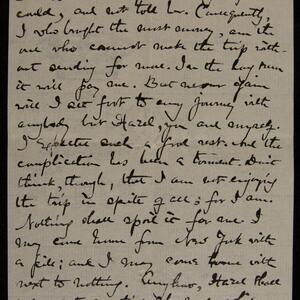 could, and not told her. Consequently,
I who brought the most money, am the
one who cannot make the trip with-
out sending for more. In the long run
it will pay me. But never again
will I set forth to any journey with
anybody but Hazel, you and myself.
I expected such a good rest. And the
complication has been a torment. Don't
think, though, that I am not enjoying
the trip in spite of all; for I am.
Nothing shall spoil it for me. I
may come home from New York with
a pile; and I may come home with
next to nothing. Anyhow, Hazel shall